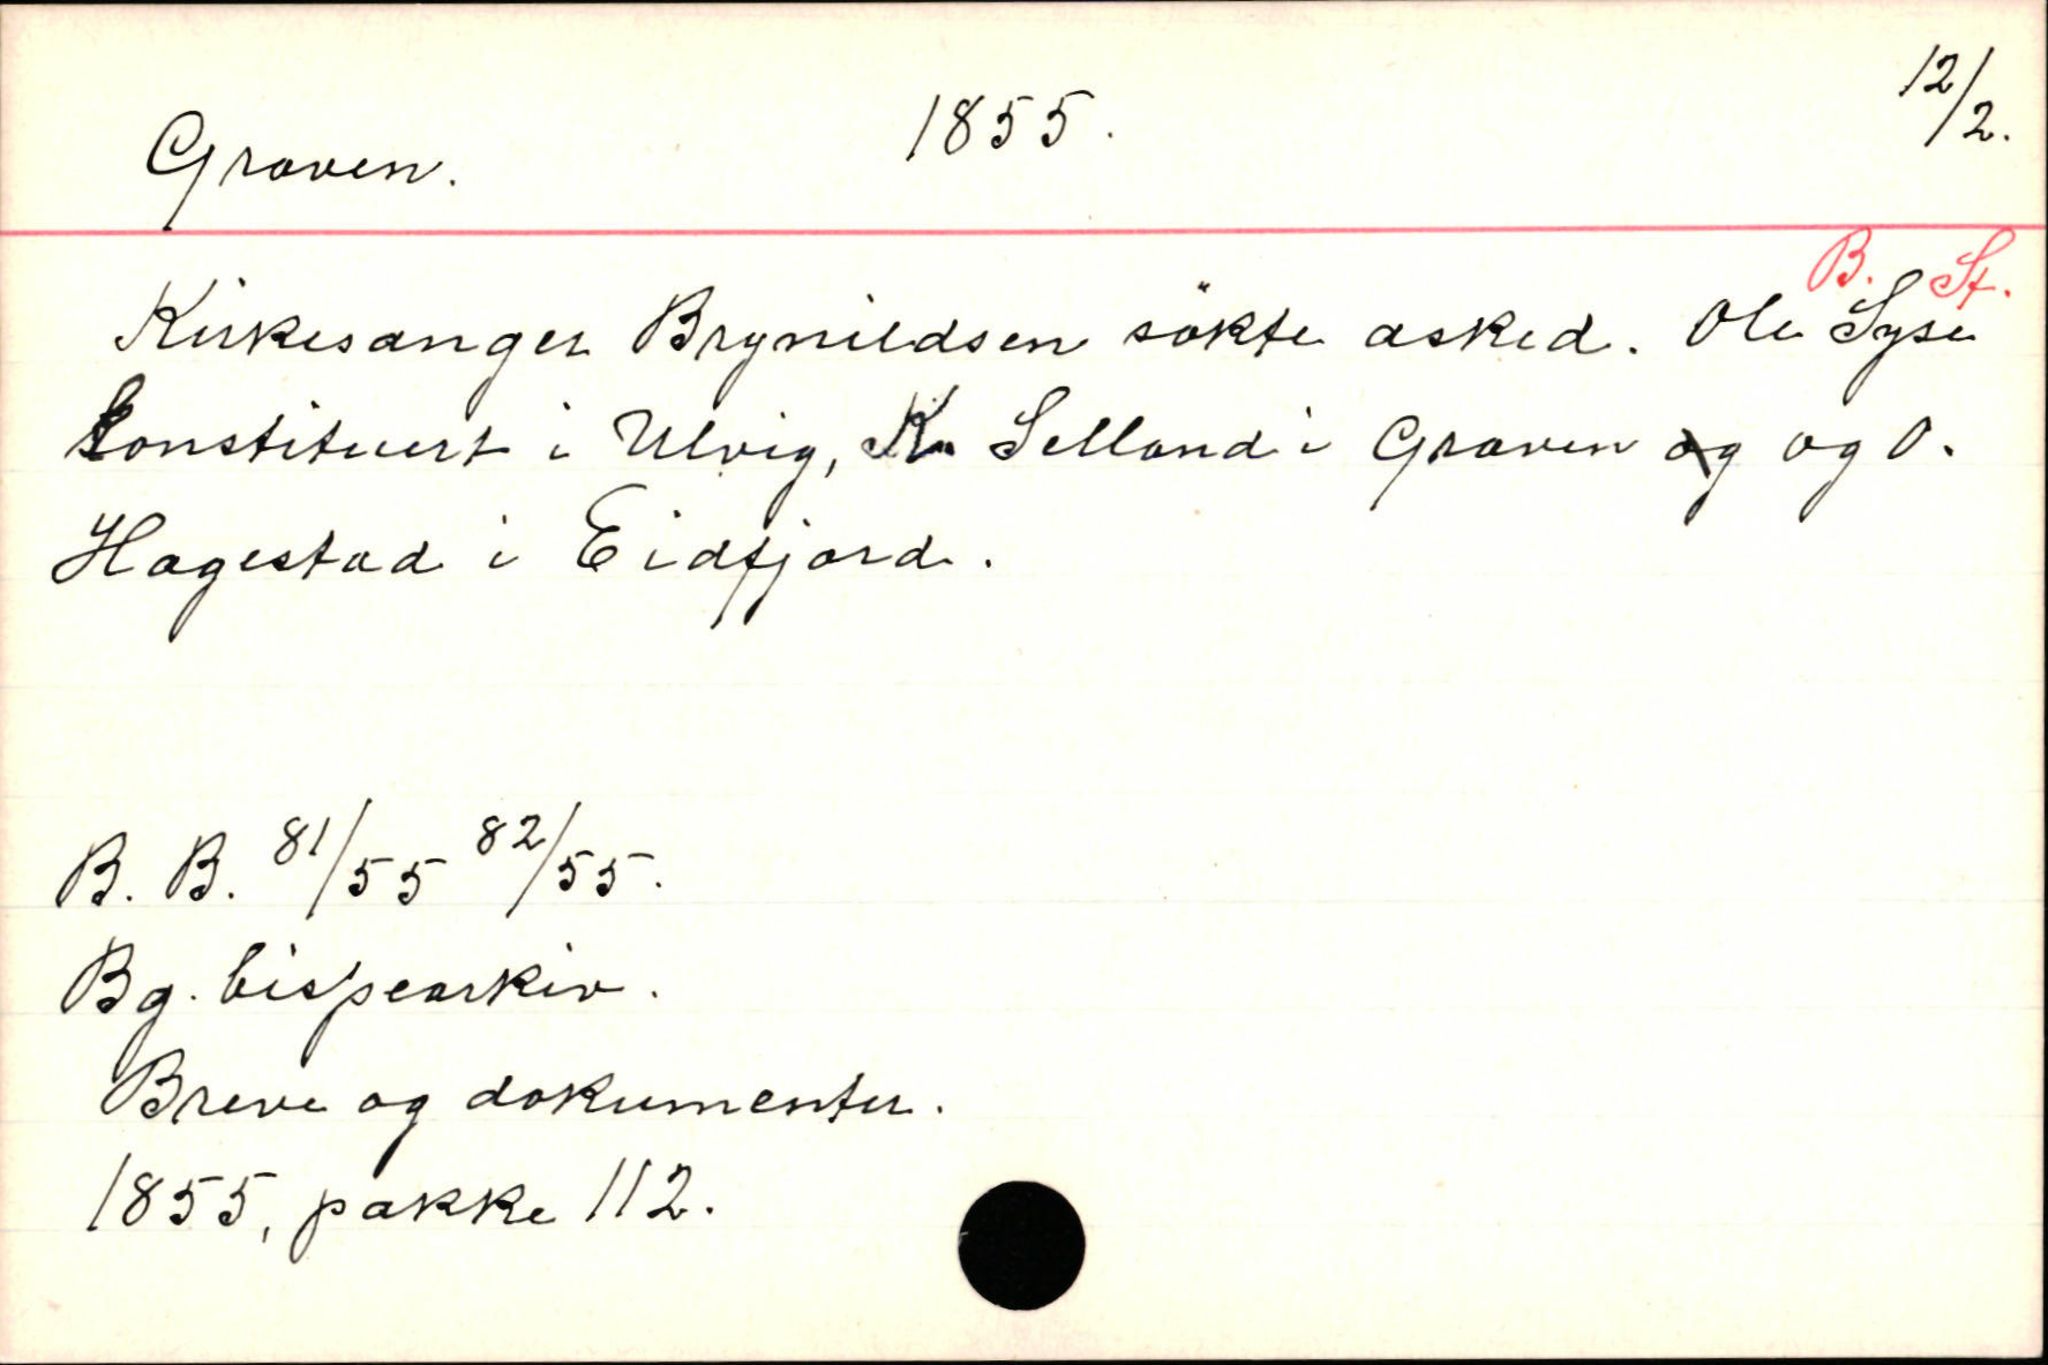 Graven. 1855. 12/2.
B. St.
Kirkesanger Brynildsen søkte asked. Ole Syse
konstituert i Ulvig, K. Selland i Graven og og O.
Hagestad i Eidfjord.
B. B. 81/55 82/55.
Bg. bispearkiv.
Breve og dokumenter.
1855, pakke 112.